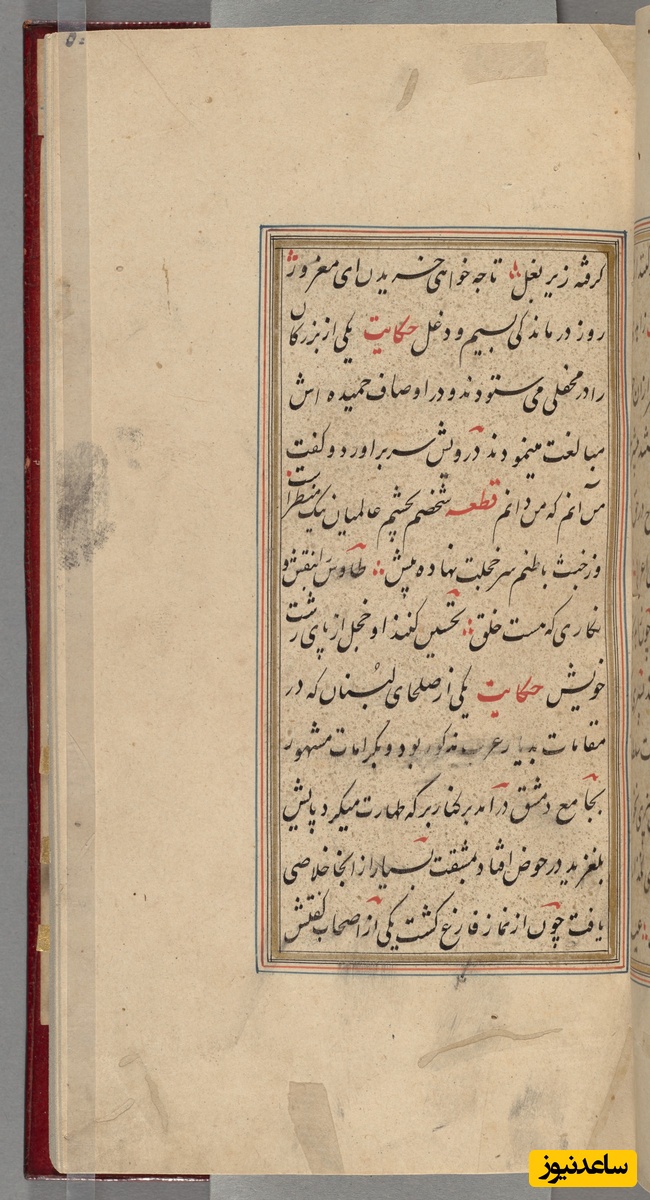 گرفته زیر بغل تا چه خواهی خریدن ای مغرور
روز درماندگی بسیم و دغل حکایت یکی از بزرکان
را در محفلی می ستودند و در اوصاف حمیده اش
مبالغت مینمودند درویش سر براورد و کفت
من آنم که من دانم قطعه شخصم بچشم عالمیان نیک منظر است
وز خبث باطنم سر خجلت نهاده پیش طاوس را بنقش و
نکاری که هست خلق تحسین کنند او خجل از پای زشت
خویش حکایت یکی از صلحای لبنان که در
مقامات بدیار عرب مذکور بود و بکرامات مشهور
بجامع دمشق درآمد بر کنار برکه طهارت میکرد پایش
بلغزید در حوض افتاد بمشقت بسیار از انجا خلاصی
یافت چون از نماز فارغ کشت یکی از اصحاب کفتش
ساعدنیوز